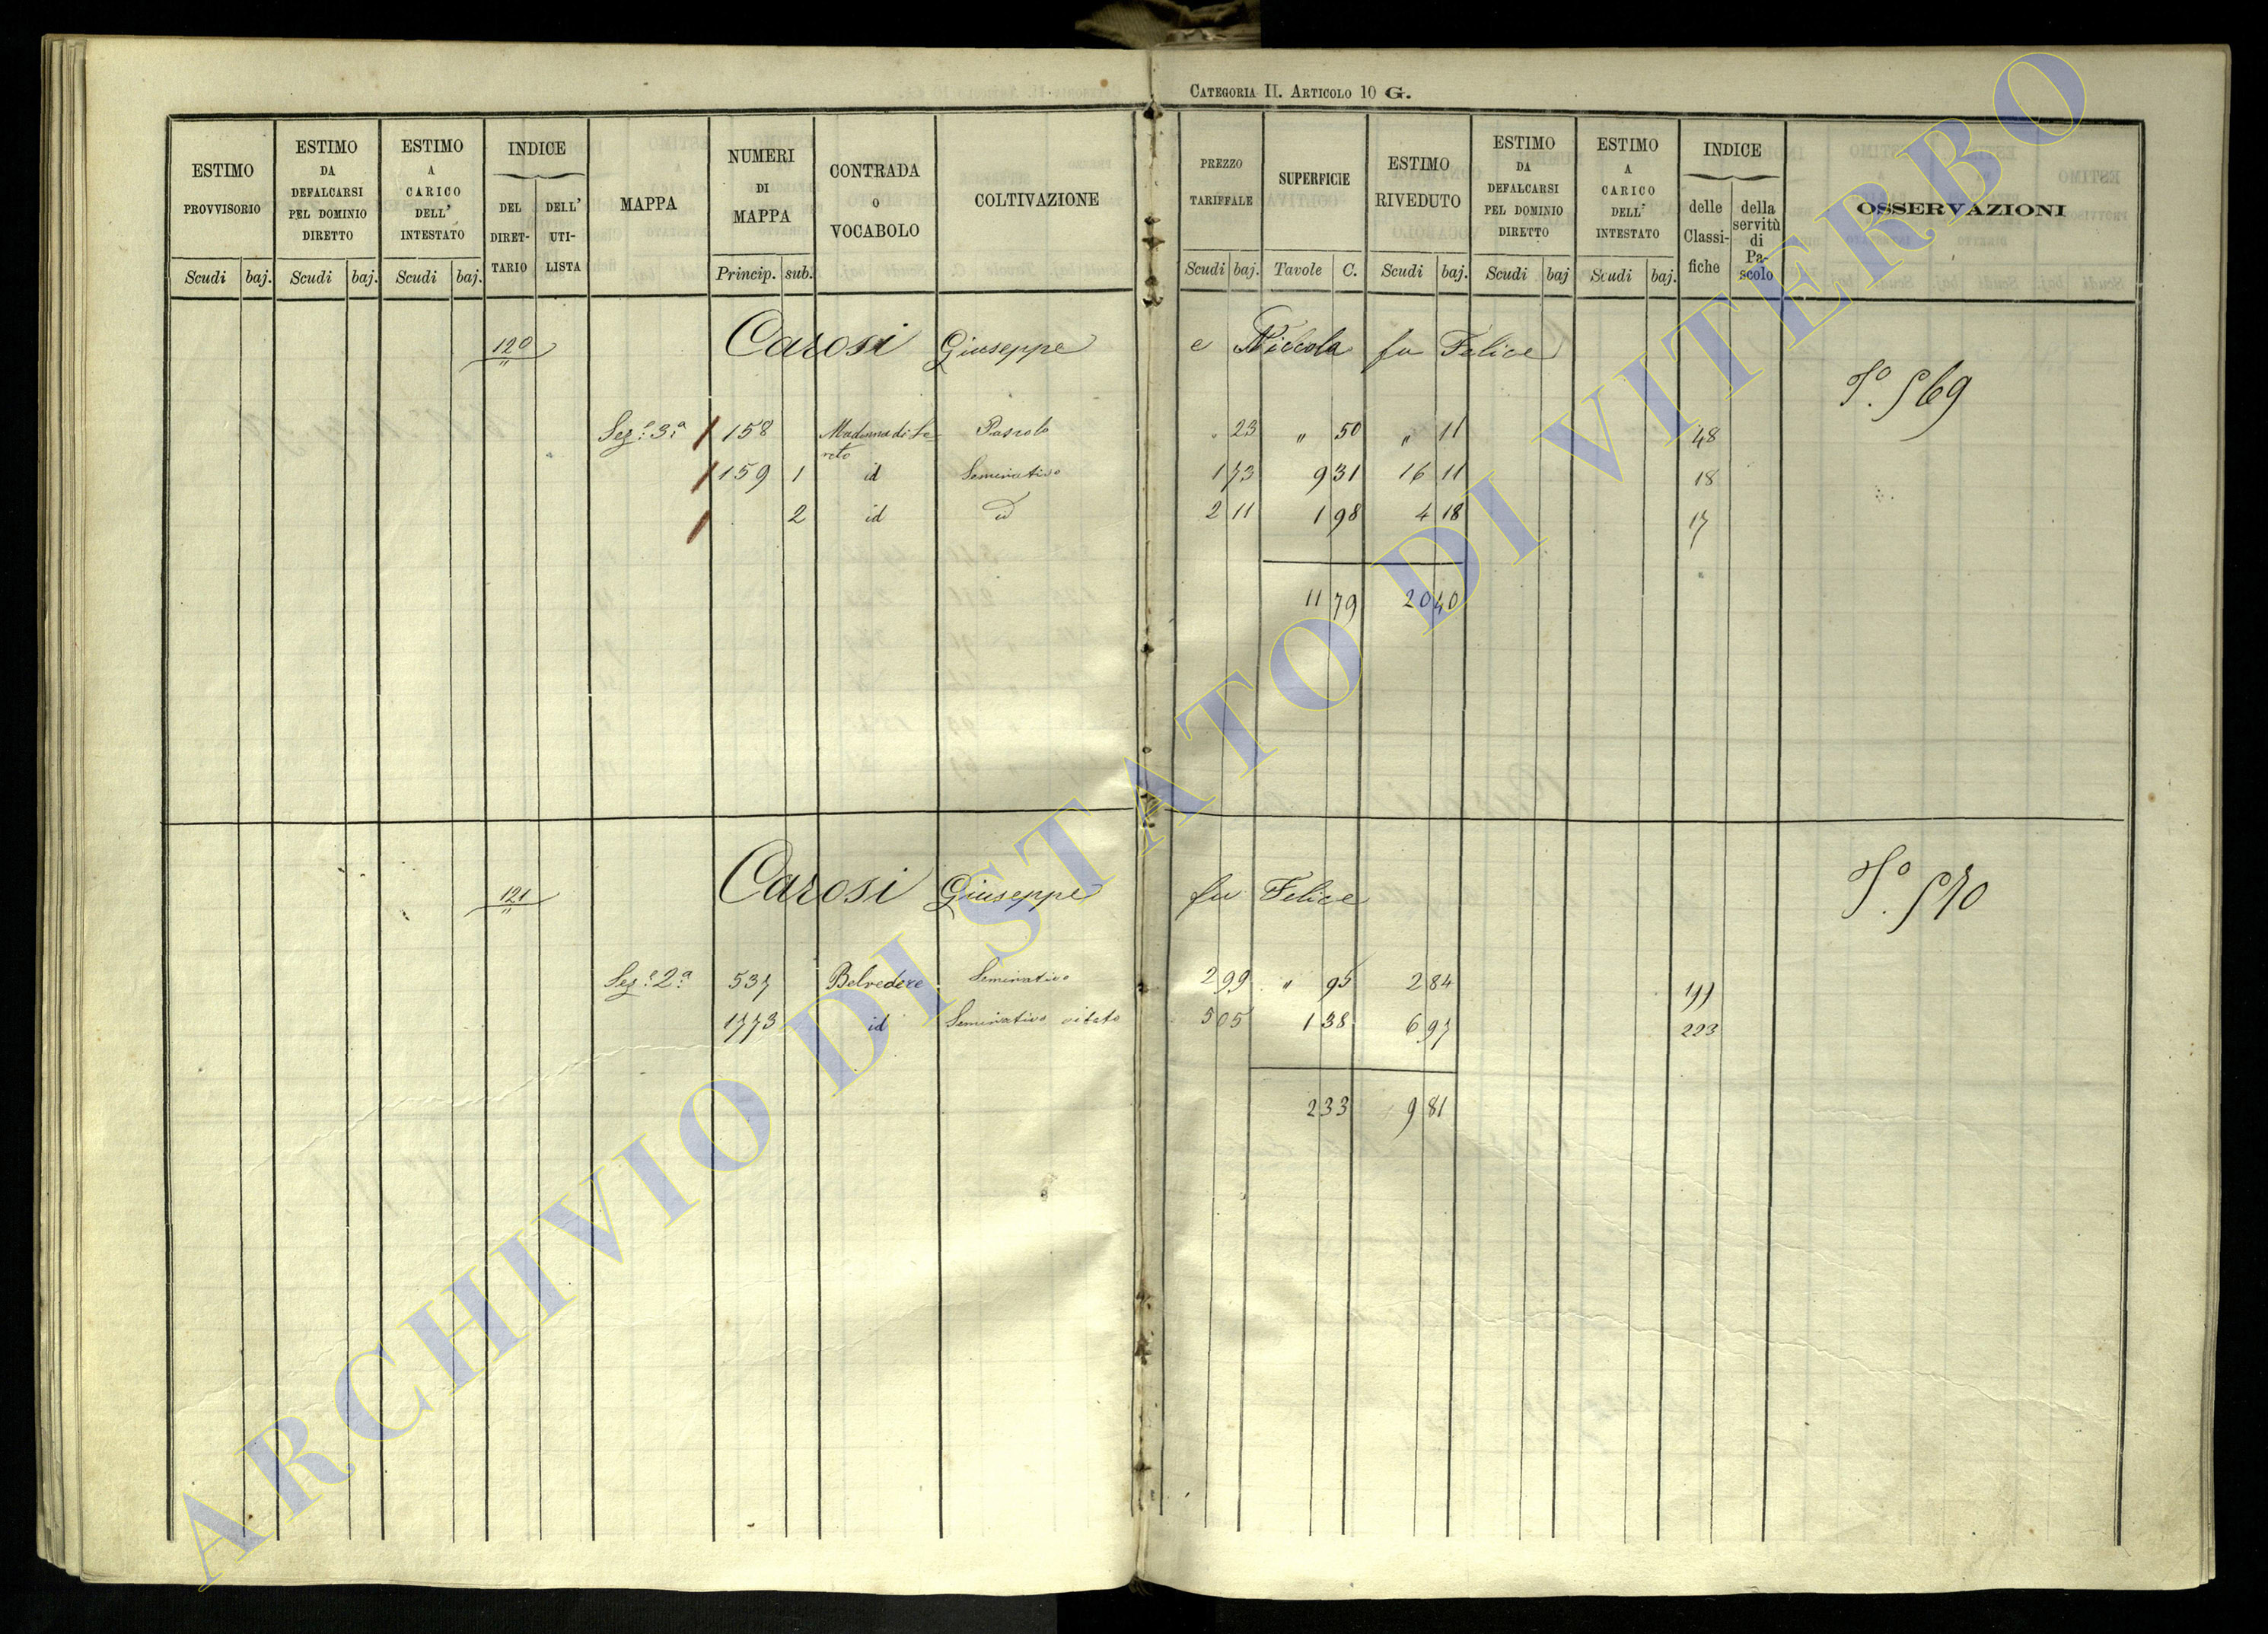 CATEGORIA II. ARTICOLO 10 G.
ESTIMO PROVVISORIO
ESTIMO DA DEFALCARSI PEL DOMINIO DIRETTO
ESTIMO A CARICO DELL' INTESTATO
INDICE
DEL DIRET-TARIO
DELL' UTI-LISTA
MAPPA
NUMERI DI MAPPA
CONTRADA O VOCABOLO
COLTIVAZIONE
PREZZO TARIFFALE
SUPERFICIE
ESTIMO RIVEDUTO
ESTIMO DA DEFALCARSI PEL DOMINIO DIRETTO
ESTIMO A CARICO DELL' INTESTATO
INDICE
delle Classi-fiche
della servitù di Pa-scolo
OSSERVAZIONI
Scudi baj. Scudi baj. Scudi baj. Princip. sub. Scudi baj. Tavole C. Scudi baj. Scudi baj Scudi baj.
120 Carosi Giuseppe e Niccola fu Felice
T.o 569
Sez.e 3.a 158 Madonna di Lo reto Pascolo " 23 " 50 " 11 48
159 1 id Seminativo 1 73 9 31 16 11 18
2 id id 2 11 1 98 4 18 17
11 79 20 40
121 Carosi Giuseppe fu Felice
T.o 570
Sez.e 2.a 537 Belvedere Seminativo 2 99 " 95 2 84
1773 id Seminativo vitato 5 05 1 38 6 97 223
2 33 9 81
ARCHIVIO DI STATO DI VITERBO